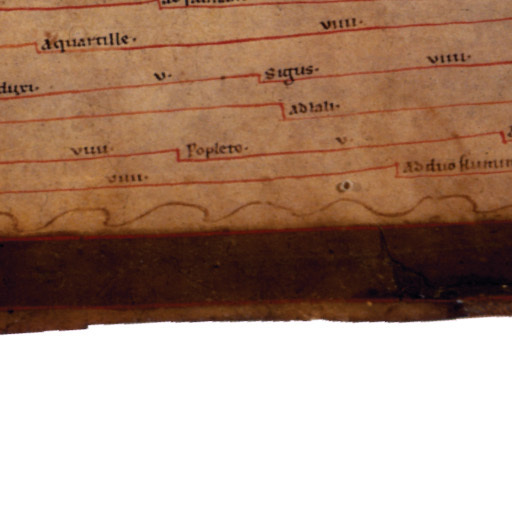 viiii·
Aquartille·
viiii·
v· Sigus·
Adlali·
v·
viiii· Popleto·
viiii· Ad duo flumin